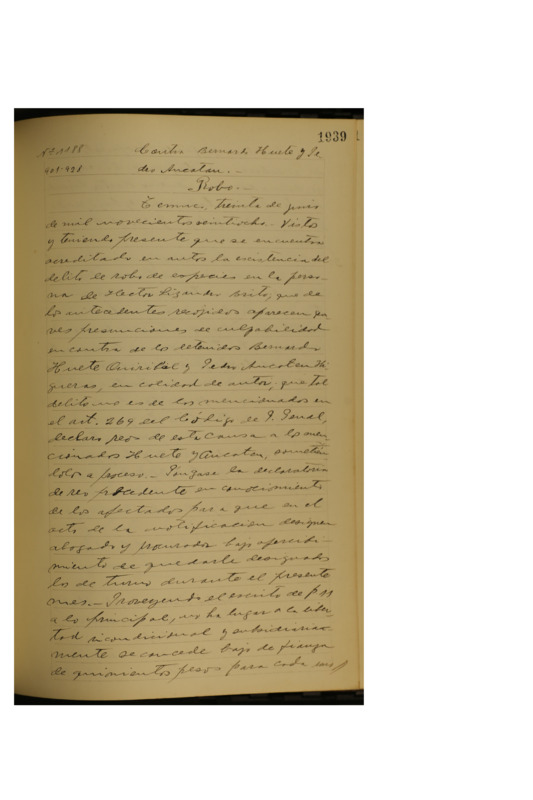 1939
Nº 1188 Contra Bernardo Huete y Pe
dro Ancatan.-
-Robo.-
Temuco, treinta de junio
de mil novecientos veintiocho.- Vistos
y teniendo presente que se encuentra
acreditado en autos la existencia del
delito de robo de especies en la perso-
na de Hector Lizandro Brito, que de
los antecedentes recojidos aparecen gra
ves presunciones de culpabilidad
en contra de los detenidos Bernardo
Huete y Pedro Ancatan Hi
gueras, en calidad de autor, que tal
delito no es de los mencionados en
el art. 269 del Código de P. Penal,
declaro reos de esta causa a los men
cionados Huete y Ancatan, sometién
dolos a proceso.- Póngase la declaratoria
de reo precedente en conocimiento
de los afectados para que en el
acto de la notificacion designen
abogado y procurador bajo apercibi-
miento de quedarle designados
los de turno durante el presente
mes.- Proveyendo el escrito de
a lo principal, no ha lugar a la liber-
tad incondicional y subsidiaria-
mente se concede bajo de fianza
de quinientos pesos para cada uno